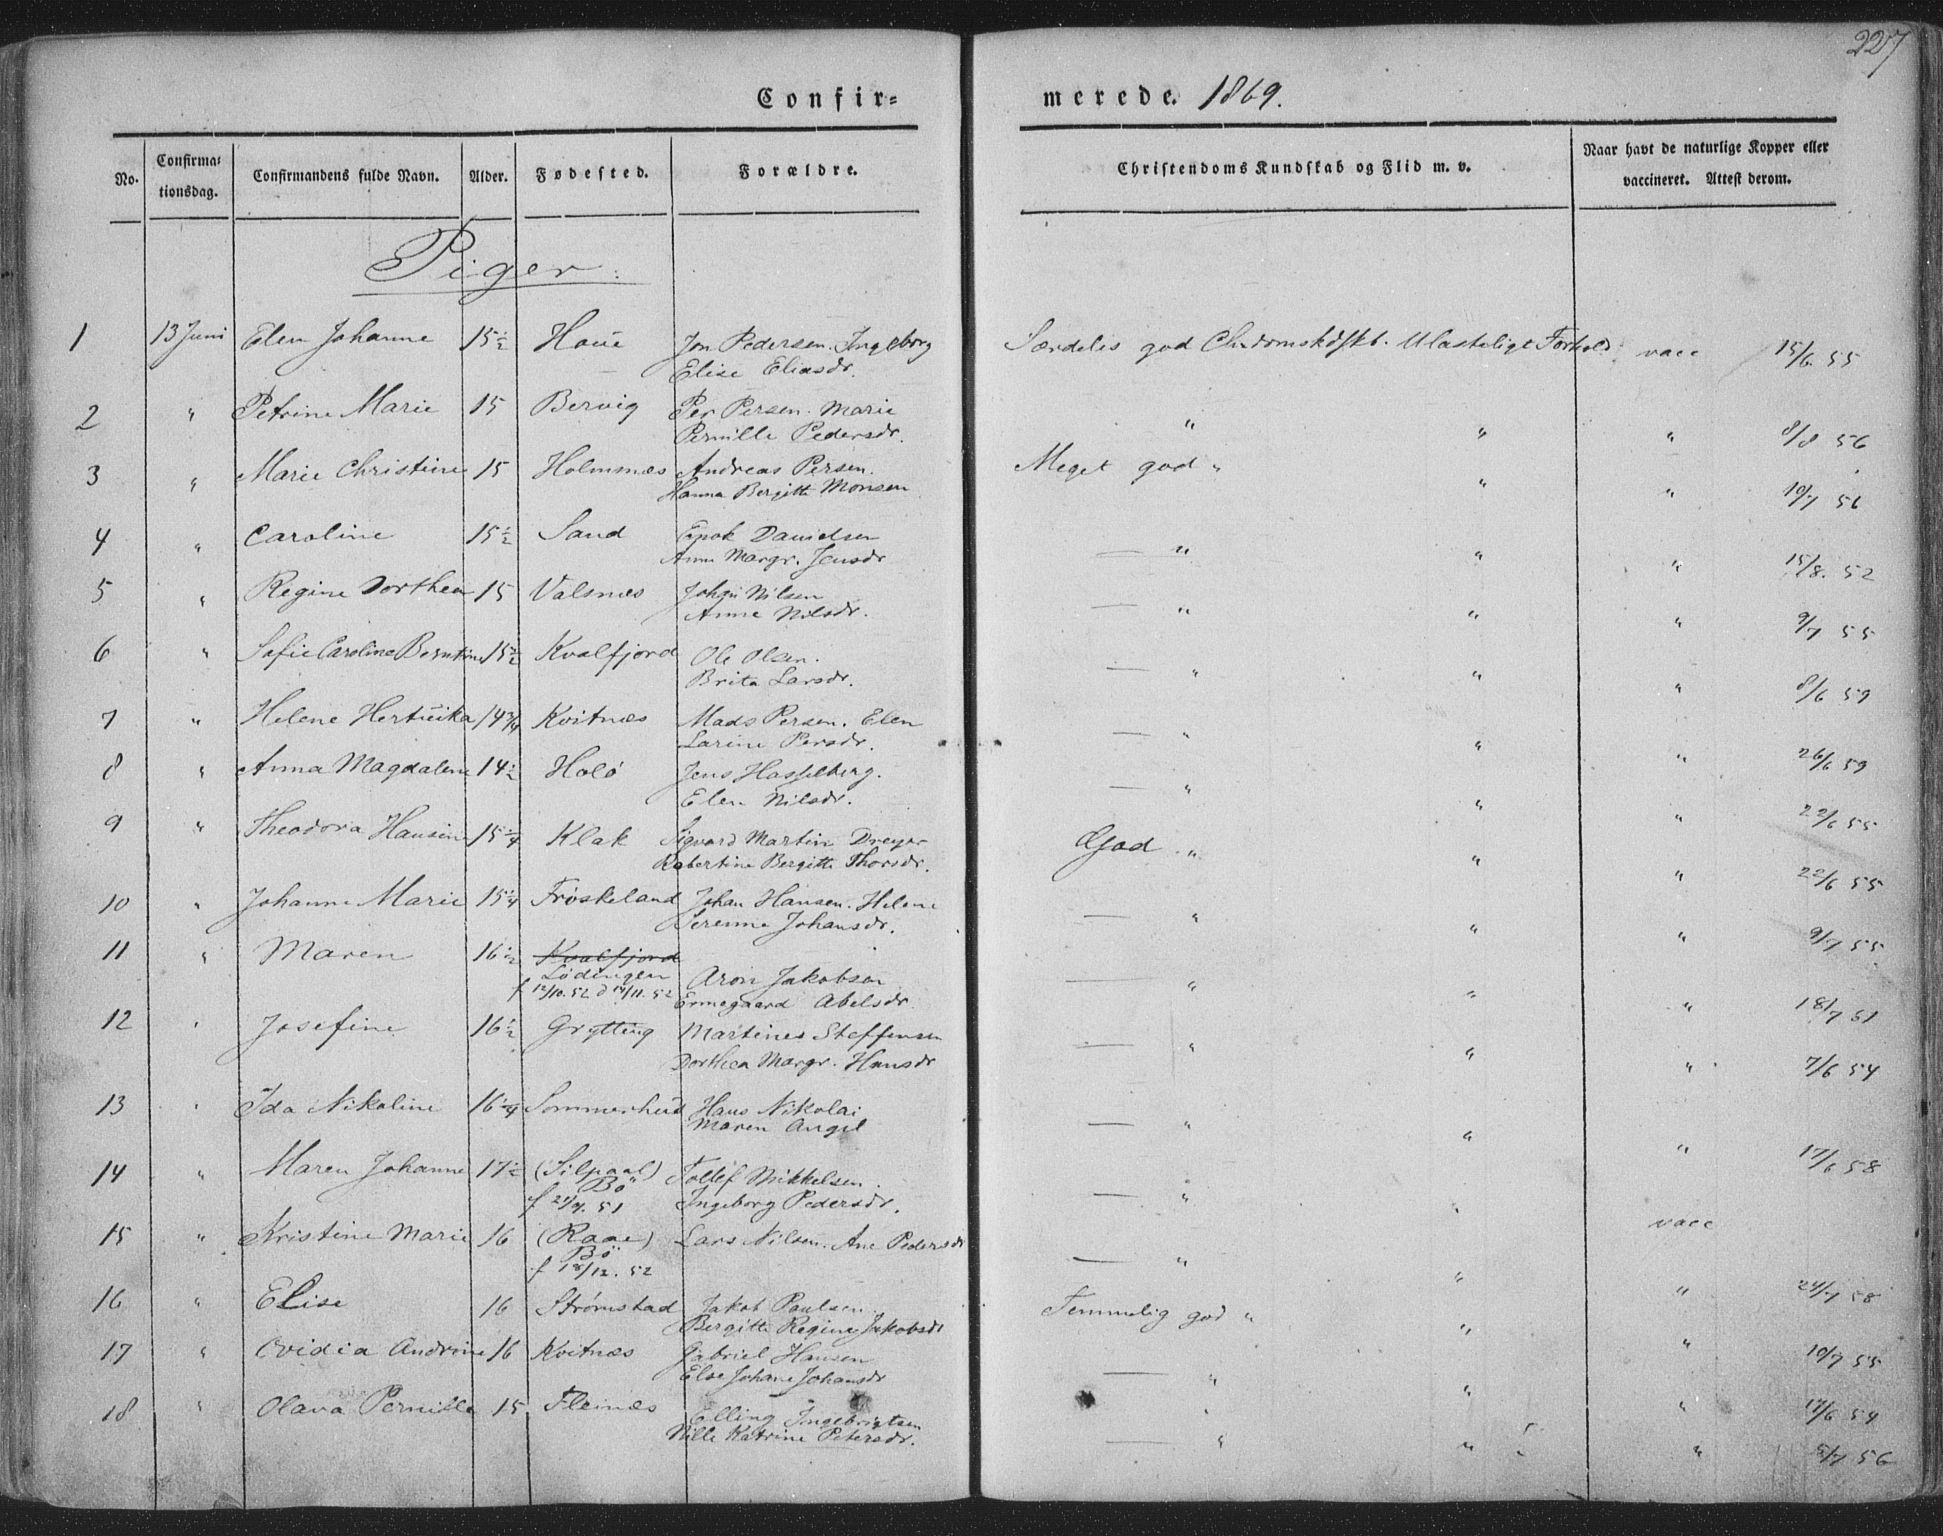 227
Confir= merede. 1869.
No. Confirma= tionsdag. Confirmandens fulde Navn. Alder. Fødested. Forældre. Christendoms Kundskab og Flid m. v. Naar havt de naturlige Kopper eller vaccineret. Attest derom.
Piger.
1 13 Juni Elen Johanne 15½ Houe Jon Pedersen. Ingeborg Særdeles god Chrdomskdskb. Ulasteligt Forhold vacc 15/6 55
Elise Eliasdr.
2 " Petrine Marie 15 Bervig Per Persen. Marie " " " 8/8 56
Pernille Pedersdr.
3 " Marie Christine 15 Holmnæs Andreas Persen. Meget god " " " 10/7 56
Hanna Bergitte Monsen
4 " Caroline 15½ Sand Danielsen — " " " 15/8. 52
Anne Margr. Jensdr
5 " Regine Dorthea 15 Valsnæs Johan Nilsen — " " " 9/7 55
Anne Nilsdr.
6 " Sofie Caroline Berntine 15½ Kvalfjord Ole Olsen. — " " " 8/6 59
Brita Larsdr.
7 " Helene Hertvika 14¾ Kvitnæs Mads Persen. Elen — " " " 26/6 59
Larine Persdr.
8 " Anna Magdalene 14½ Holø Jens Hasselberg. — " " " 22/6 55
Elen Nilsdr.
9 " Theodora Hansine 15¼ Klak Sigvard Martin Dreyer God " " " 22/6 55
Robertine Bergitte Thorsdr.
10 " Johanne Marie 15¼ Frøskeland Johan Hansen. Helene — " " " 9/7 55
Serenne Johansdr.
11 " Maren 16½ Kvalfjord
Lødingen Aron Jakobsen — " " " 18/7 61
f 12/10. 52 d 14/11. 52 Ermegaard Abelsdr.
12 " Josefine 16½ Grytting Martines Steffensen — " " " 7/6 54
Dorthea Margr. Hansdr
13 " Ida Nikoline 16¼ Sommerhus Hans Nikolai — " " " 17/6 58
Maren Angel
14 " Maren Johanne 17½ (Silpaal) Tollef Mikkelsen. — " " vacc
Bö
f 21/9. 51 Ingeborg Pedersdr.
15 " Kristine Marie 16 (Raae) Lars Nilsen. Ane Pedersdr — " " " 24/7 58
Bö
f 18/12. 52
16 " Elise 16 Strømstad Jakob Paulsen Temmelig god " " " 10/7 55
Bergitte Regine Jakobsdr
17 " Ovidia Andrine 16 Kvitnæs Gabriel Hansen — " " " 17/6 54
Else Johane Johansdr
18 " Olava Pernille 15 Fleinæs Elling Ingebrigtsen — " " " 5/7 56
Nille Katrine Petersdr.